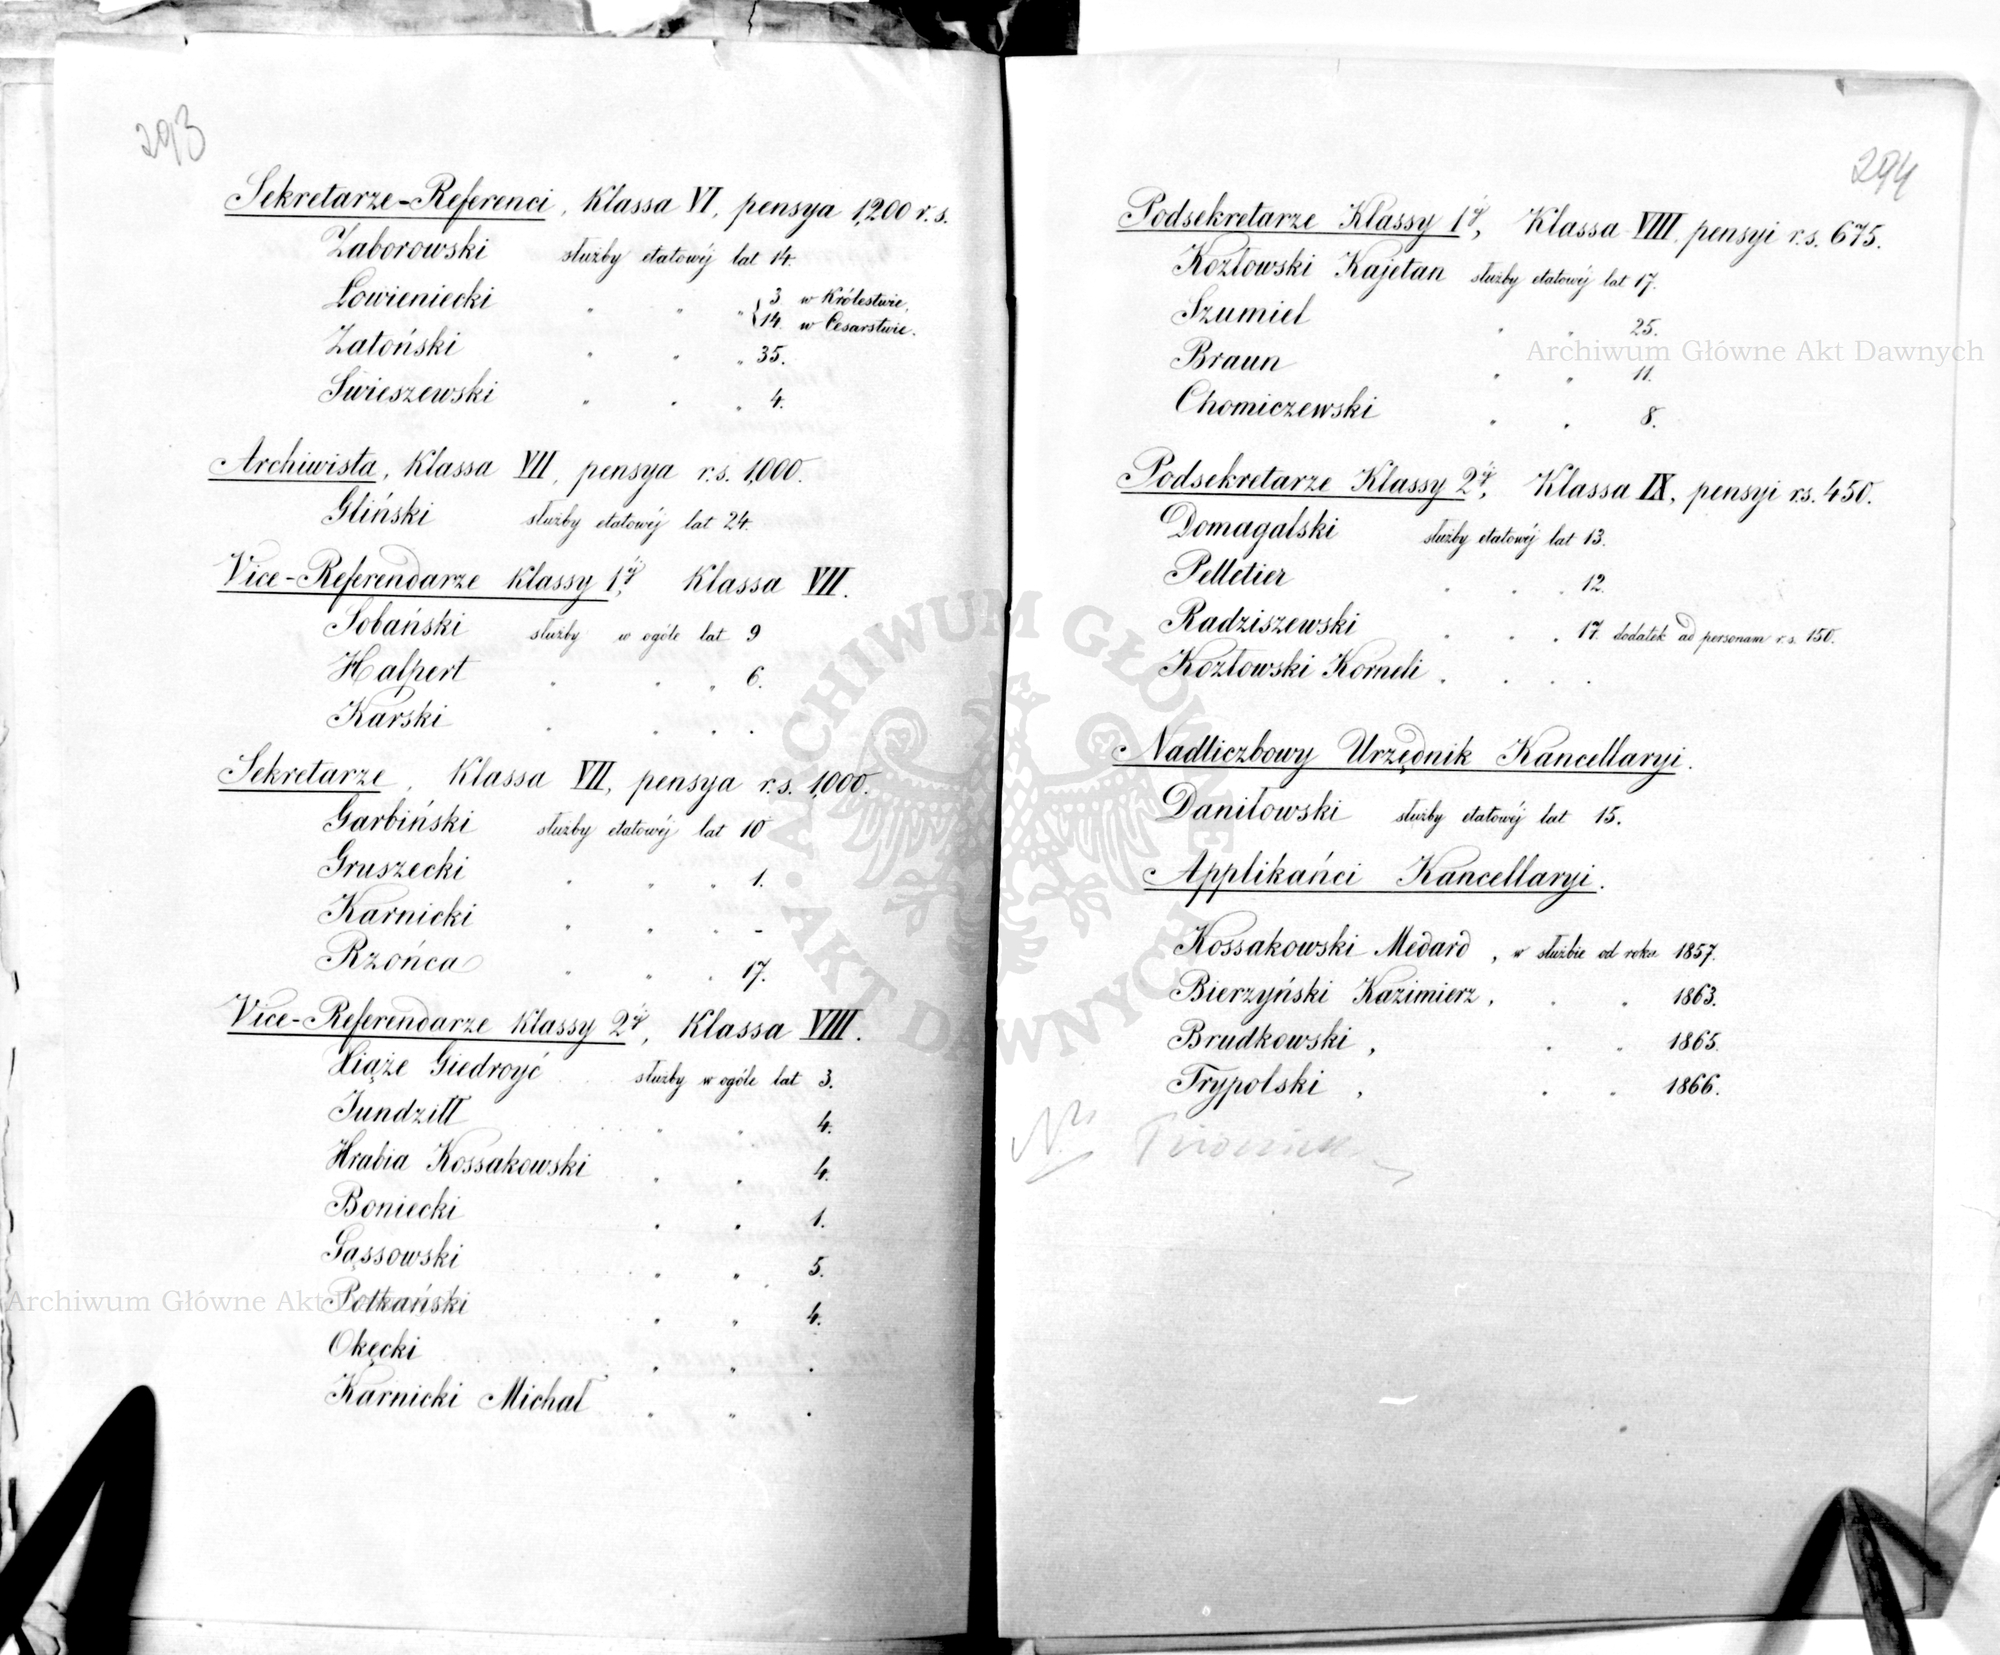 293
Sekretarze-Referenci, Klassa VI, pensya 1,200 r.s.
Zaborowski służby etatowéj lat 14.
Łowieniecki " " " { 3. w Królestwie,
14. w Cesarstwie.
Zatoński " " " 35.
Świeszewski " " " 4.
Archiwista, Klassa VII, pensya r.s. 1,000.
Gliński służby etatowéj lat 24.
Vice-Referendarze Klassy 1éj, Klassa VII.
Sobański służby w ogóle lat 9
Halpert " " " 6.
Karski " " " "
Sekretarze, Klassa VII, pensya r.s. 1,000.
Garbiński służby etatowéj lat 10
Gruszecki " " " 1.
Karnicki " " " -
Rzońca " " " 17.
Vice-Referendarze Klassy 2éj, Klassa VIII.
Xiąże Giedroyć służby w ogóle lat 3.
Jundziłł " " 4.
Hrabia Kossakowski " " 4.
Boniecki " " 1.
Gąssowski " " 5.
Potkański " " 4.
Okęcki " " "
Karnicki Michał " " "
294
Podsekretarze Klassy 1éj, Klassa VIII, pensyi r.s. 675.
Kozłowski Kajetan służby etatowéj lat 17.
Szumiel " " 25.
Braun " " 11.
Chomiczewski " " 8.
Podsekretarze Klassy 2éj, Klassa IX, pensyi r.s. 450.
Domagalski służby etatowéj lat 13.
Pelletier " " " 12.
Radziszewski " " " 17. dodatek ad personam r.s. 150.
Kozłowski Korneli " " " "
Nadliczbowy Urzędnik Kancellaryi.
Daniłowski służby etatowéj lat 15.
Applikańci Kancellaryi.
Kossakowski Medard, w służbie od roku 1857.
Bierzyński Kazimierz, " " 1863.
Brudkowski, " " 1865.
Trypolski, " " 1866.
Archiwum Główne Akt Dawnych
Archiwum Główne Akt Dawnych
ARCHIWUM GŁÓWNE AKT DAWNYCH